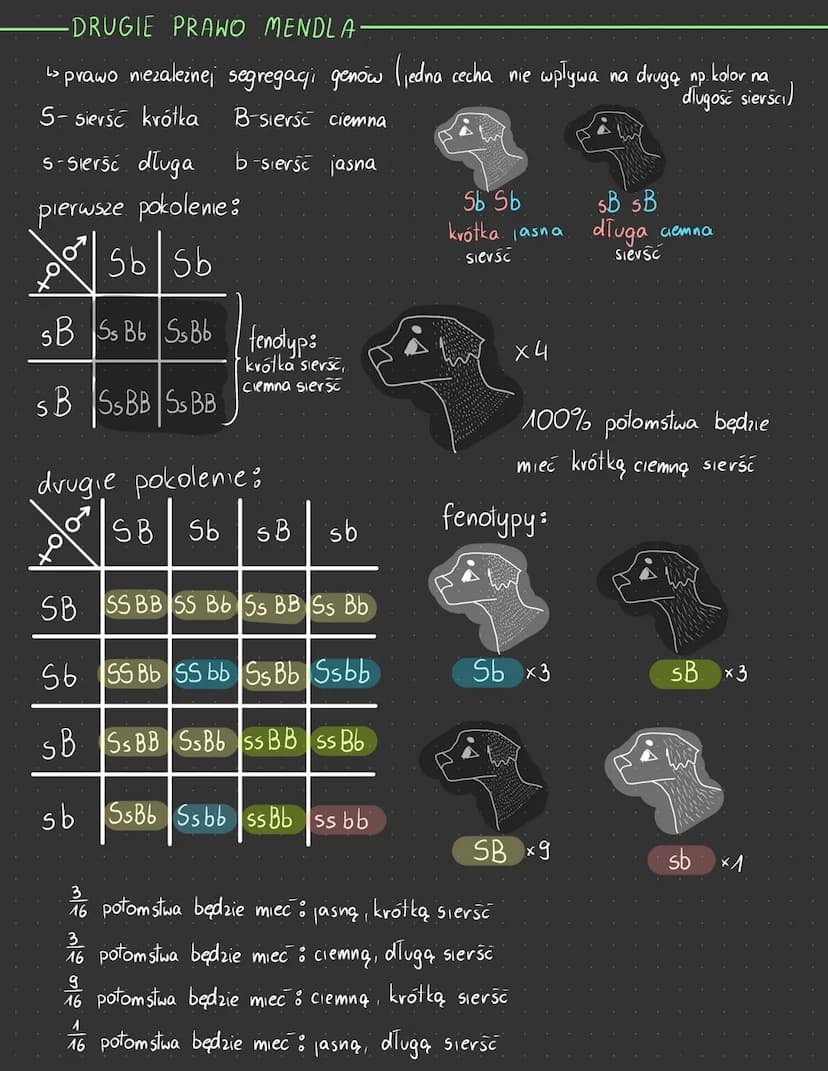 DRUGIE PRAWO MENDLA
↳ prawo niezależnej segregacji genów (jedna cecha nie wpływa na drugą np kolor na
długość sierści)
S- sierść krótka B-sierść ciemna
s-sierść długa b-sierść jasna
Sb Sb sB sB
krótka jasna długa ciemna
sierść sierść
pierwsze pokolenie:
♀ ♂ Sb Sb
sB SsBb SsBb
sB SsBB SsBB
fenotyp:
krótka sierść,
ciemna sierść
x4
100% potomstwa będzie
mieć krótką ciemną sierść
drugie pokolenie:
♀ ♂ SB Sb sB sb
SB SSBB SSBb SsBB SsBb
Sb SSBb SSbb SsBb Ssbb
sB SsBB SsBb ssBB ssBb
sb SsBb Ssbb ssBb ssbb
fenotypy:
Sb x3 sB x3
SB x9 sb x1
3/16 potomstwa będzie mieć: jasną, krótką sierść
3/16 potomstwa będzie mieć: ciemną, długą sierść
9/16 potomstwa będzie mieć: ciemną, krótką sierść
1/16 potomstwa będzie mieć: jasną, długą sierść